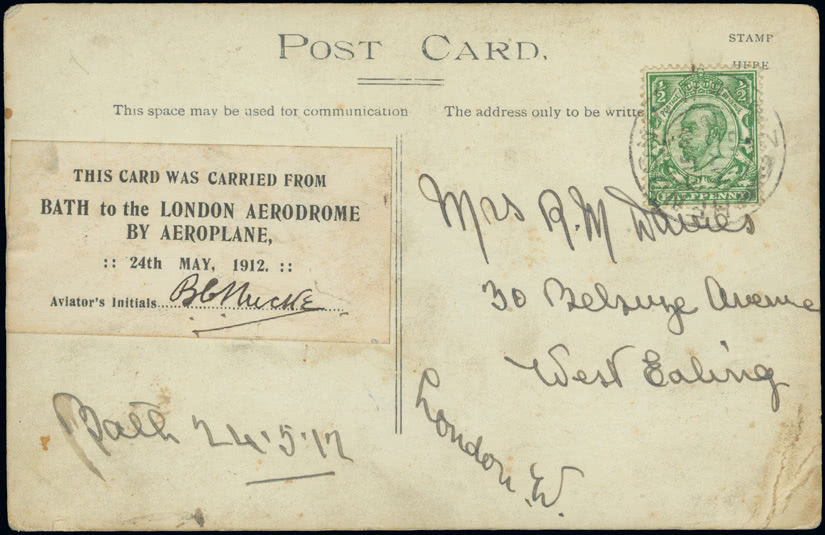 POST CARD.
STAMP
HERE
This space may be used for communication
The address only to be writte
½ ½
HALFPENNY
THIS CARD WAS CARRIED FROM
BATH to the LONDON AERODROME
BY AEROPLANE,
:: 24th MAY, 1912. ::
Aviator's Initials
Bath 24.5.12
Mrs R. M Davies
30 Belsize Avenue
West Ealing
London. W.